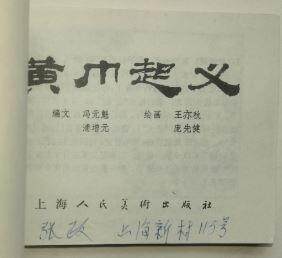 黄巾起义
编文 冯元魁 绘画 王亦秋
潘增元 庞先健
上海人民美術出版社
张政 上海新村115号